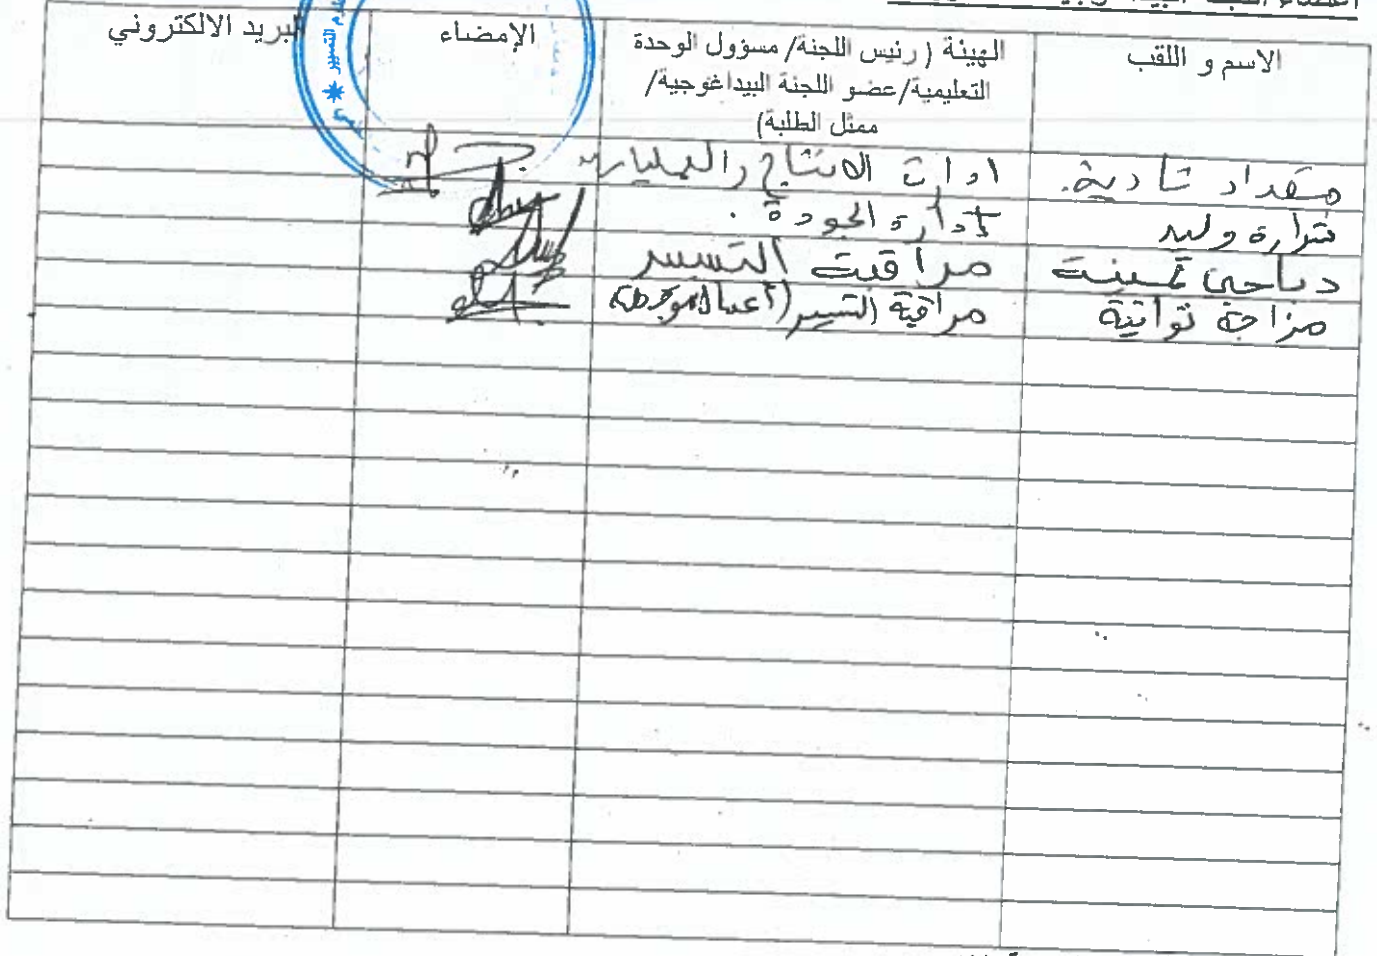 الاسم و اللقب
الهيئة ( رئيس اللجنة/ مسؤول الوحدة
التعليمية/عضو اللجنة البيداغوجية/
ممثل الطلبة)
الإمضاء
البريد الالكتروني
علوم التسيير
مقداد نادية.
ادارت الانتاج والعمليات
وليد
إدارة الجودة.
دباحي يمينة
مراقبت التسيير
مزاجة تواتية
مراقبة التسيير (أعمال موجهة)